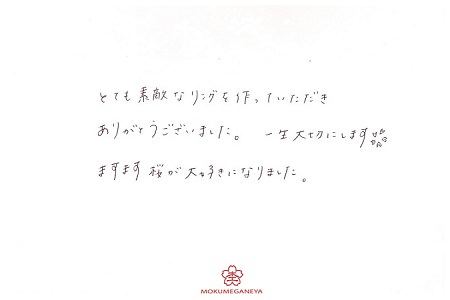 とても素敵なリングを作っていただき
ありがとうございました。 一生大切にします
ますます桜が大好きになりました。
MOKUMEGANEYA